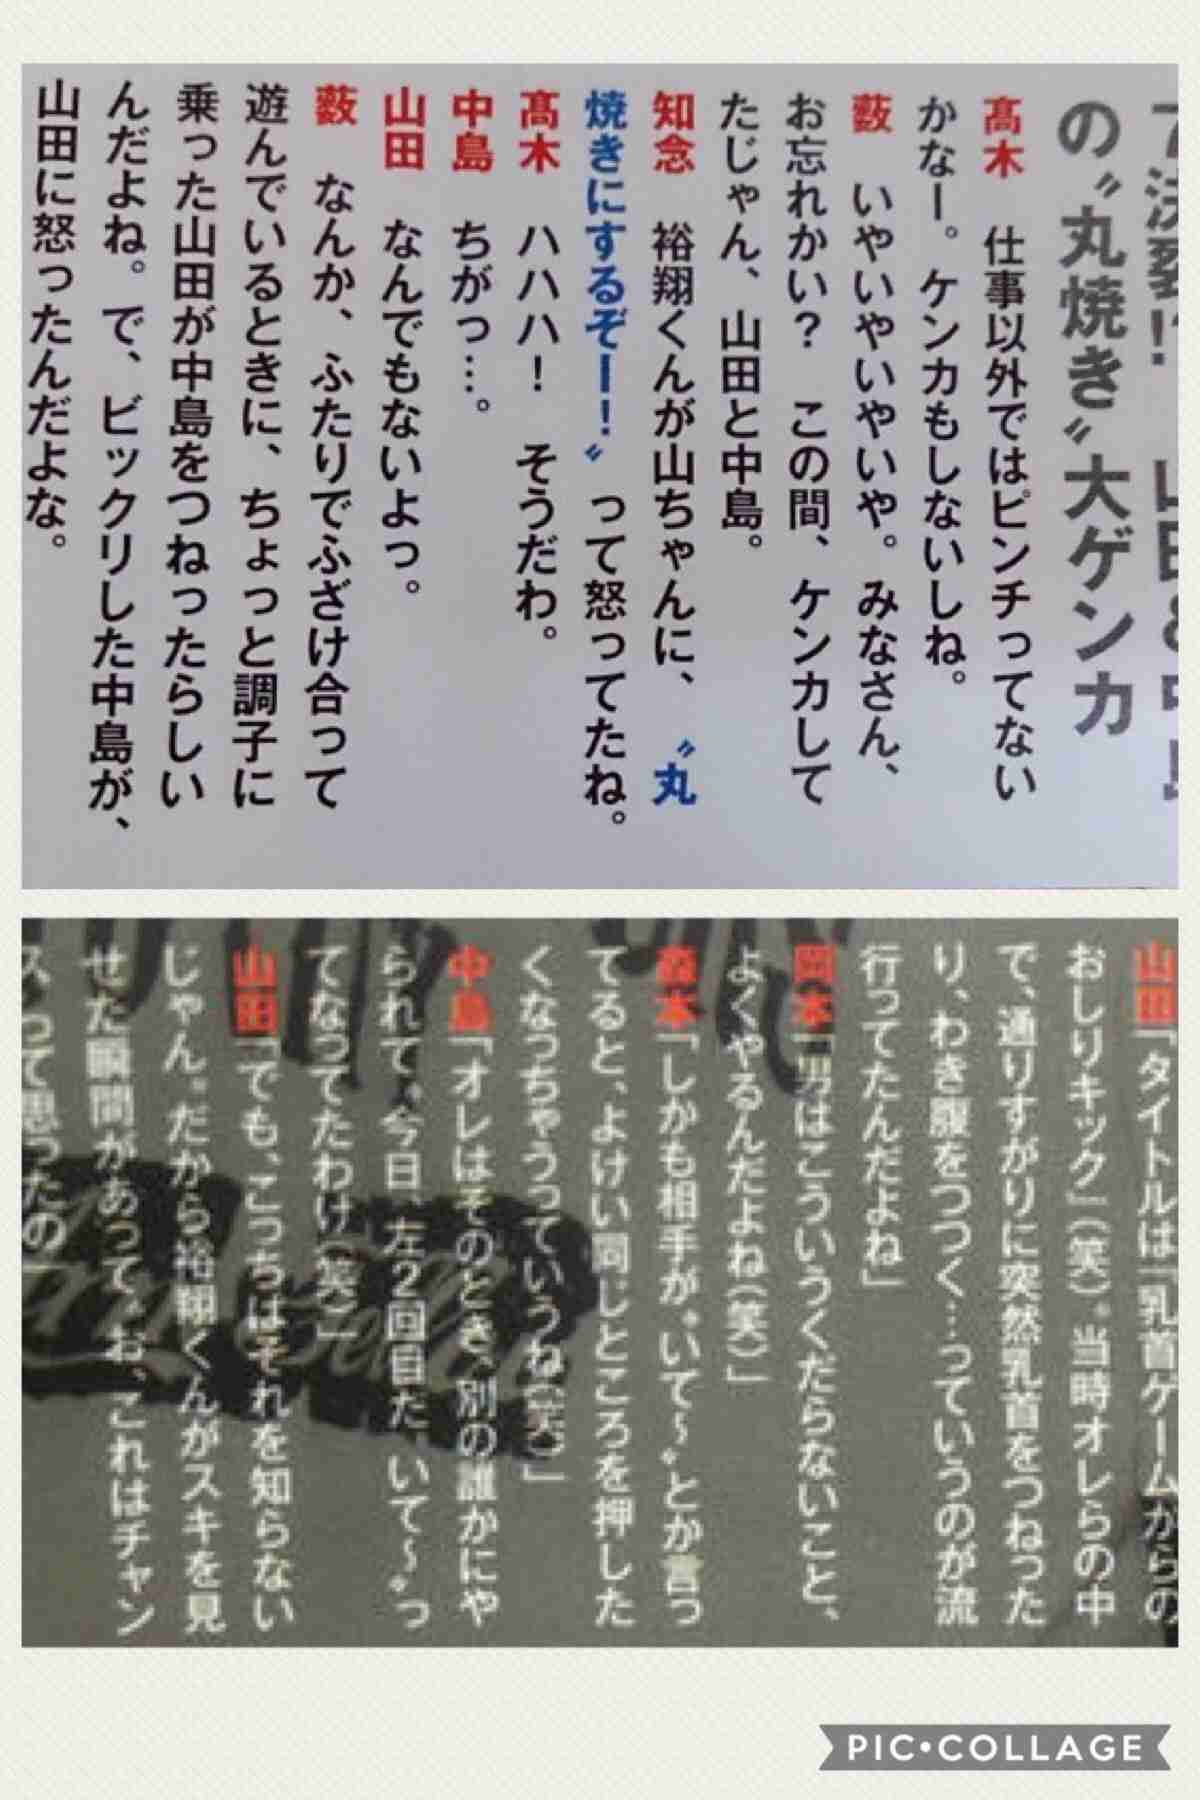 の〝丸焼き〟大ゲンカ
髙木　仕事以外ではピンチってない
かなー。ケンカもしないしね。
薮　いやいやいやいや。みなさん、
お忘れかい？　この間、ケンカして
たじゃん、山田と中島。
知念　裕翔くんが山ちゃんに、〝丸
焼きにするぞー！〟って怒ってたね。
髙木　ハハハ！　そうだわ。
中島　ちがっ…。
山田　なんでもないよっ。
薮　なんか、ふたりでふざけ合って
遊んでいるときに、ちょっと調子に
乗った山田が中島をつねったらしい
んだよね。で、ビックリした中島が、
山田に怒ったんだよな。
山田「タイトルは『乳首ゲームからの
おしりキック』（笑）。当時オレらの中
で、通りすがりに突然乳首をつねった
り、わき腹をつつく…っていうのが流
行ってたんだよね」
岡本「男はこういうくだらないこと、
よくやるんだよね（笑）」
森本「しかも相手が〝いて〜〟とか言っ
てると、よけい同じところを押した
くなっちゃうっていうね（笑）」
中島「オレはそのとき、別の誰かにや
られて、〝今日、左2回目だ、いて〜〟っ
てなってたわけ（笑）」
山田「でも、こっちはそれを知らない
じゃん。だから裕翔くんがスキを見
せた瞬間があって、〝お、これはチャン
ス〟って思ったの」
PIC•COLLAGE